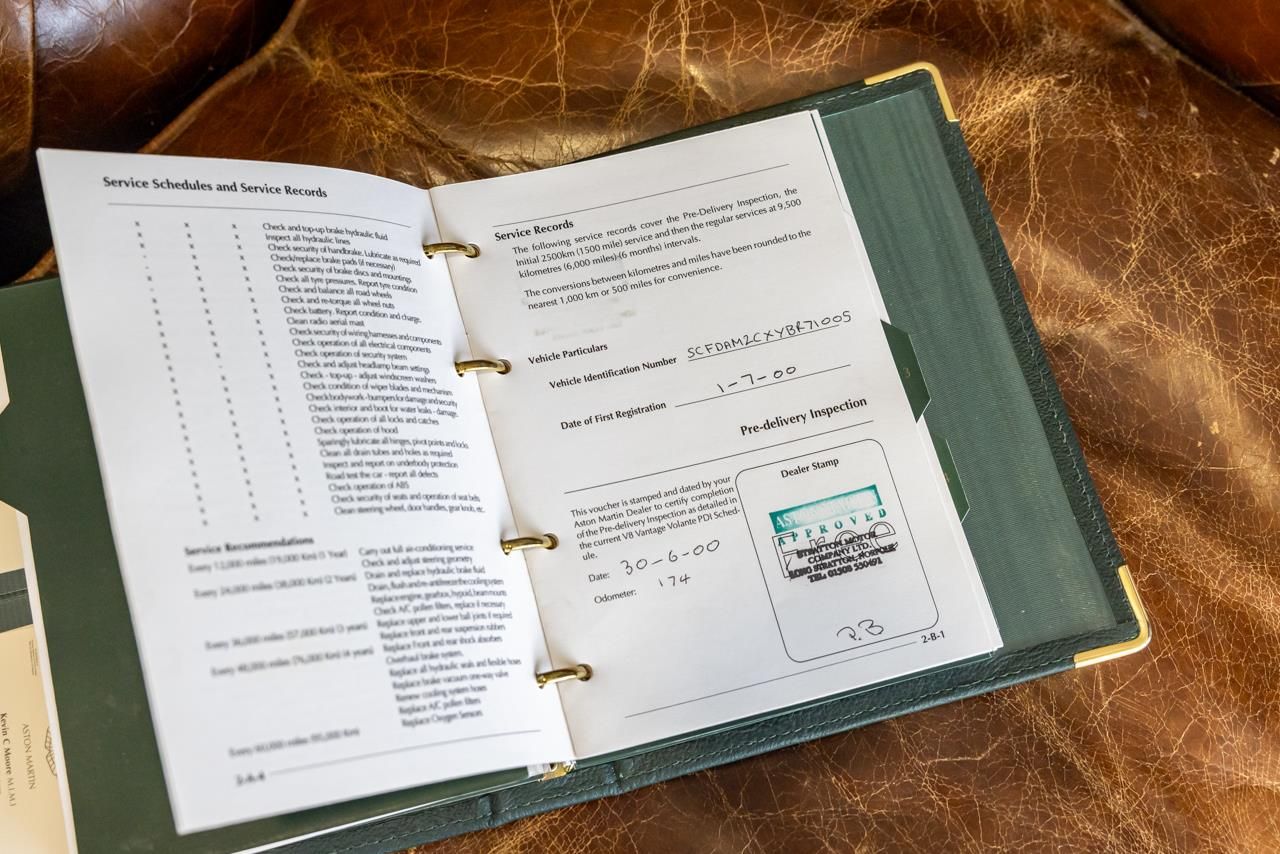 Service Schedules and Service Records
x x x Check and top-up brake hydraulic fluid
x x x Inspect all hydraulic lines
Check security of handbrake. Lubricate as required
Check/replace brake pads (if necessary)
Check security of brake discs and mountings
Check all tyre pressures. Report tyre condition
Check and balance all road wheels
Check and re-torque all wheel nuts
Check battery. Report condition and charge,
Clean radio aerial mast
Check security of wiring harnesses and components
Check operation of all electrical components
Check operation of security system
Check and adjust headlamp beam settings
Check - top-up - adjust windscreen washers
Check condition of wiper blades and mechanism
Check bodywork - bumpers for damage and security
Check interior and boot for water leaks - damage.
Check operation of all locks and catches
Check operation of hood
Sparingly lubricate all hinges, pivot points and locks
Clean all drain tubes and holes as required
Inspect and report on underbody protection
Road test the car - report all defects
Check operation of ABS
Check security of seats and operation of seat belts
Clean steering wheel, door handles, gear knob, etc.
Service Recommendations
Every 12,000 miles (19,000 Km) (1 Year) Carry out full air-conditioning service
Check and adjust steering geometry
Every 24,000 miles (38,000 Km) (2 Years) Drain and replace hydraulic brake fluid
Drain, flush and re-antifreeze the cooling system
Replace engine, gearbox, hypoid, beam mounts
Check A/C pollen filters, replace if necessary
Every 36,000 miles (57,000 Km) (3 years) Replace upper and lower ball joints if required
Replace front and rear suspension rubbers
Every 48,000 miles (76,000 Km) (4 years) Replace Front and rear shock absorbers
Overhaul brake system.
Replace all hydraulic seals and flexible hoses
Replace brake vacuum one-way valve
Renew cooling system hoses
Replace A/C pollen filters
Every 60,000 miles (95,000 Km) Replace Oxygen Sensors
Service Records
The following service records cover the Pre-Delivery Inspection, the
Initial 2500km (1500 mile) service and then the regular services at 9,500
kilometres (6,000 miles)-(6 months) intervals.
The conversions between kilometres and miles have been rounded to the
nearest 1,000 km or 500 miles for convenience.
Vehicle Particulars
Vehicle Identification Number SCFDAM2CXYBR71005
Date of First Registration 1-7-00
Pre-delivery Inspection
This voucher is stamped and dated by your
Aston Martin Dealer to certify completion
of the Pre-delivery Inspection as detailed in
the current V8 Vantage Volante PDI Sched-
ule.
Date: 30-6-00
Odometer: 174
Dealer Stamp
APPROVED
STRATTON MOTOR
COMPANY LTD.
LONG STRATTON, NORFOLK
TEL: 01508 530491
P.B
2-B-1
3
ASTON MARTIN
Kevin C Moore M.I.M.I